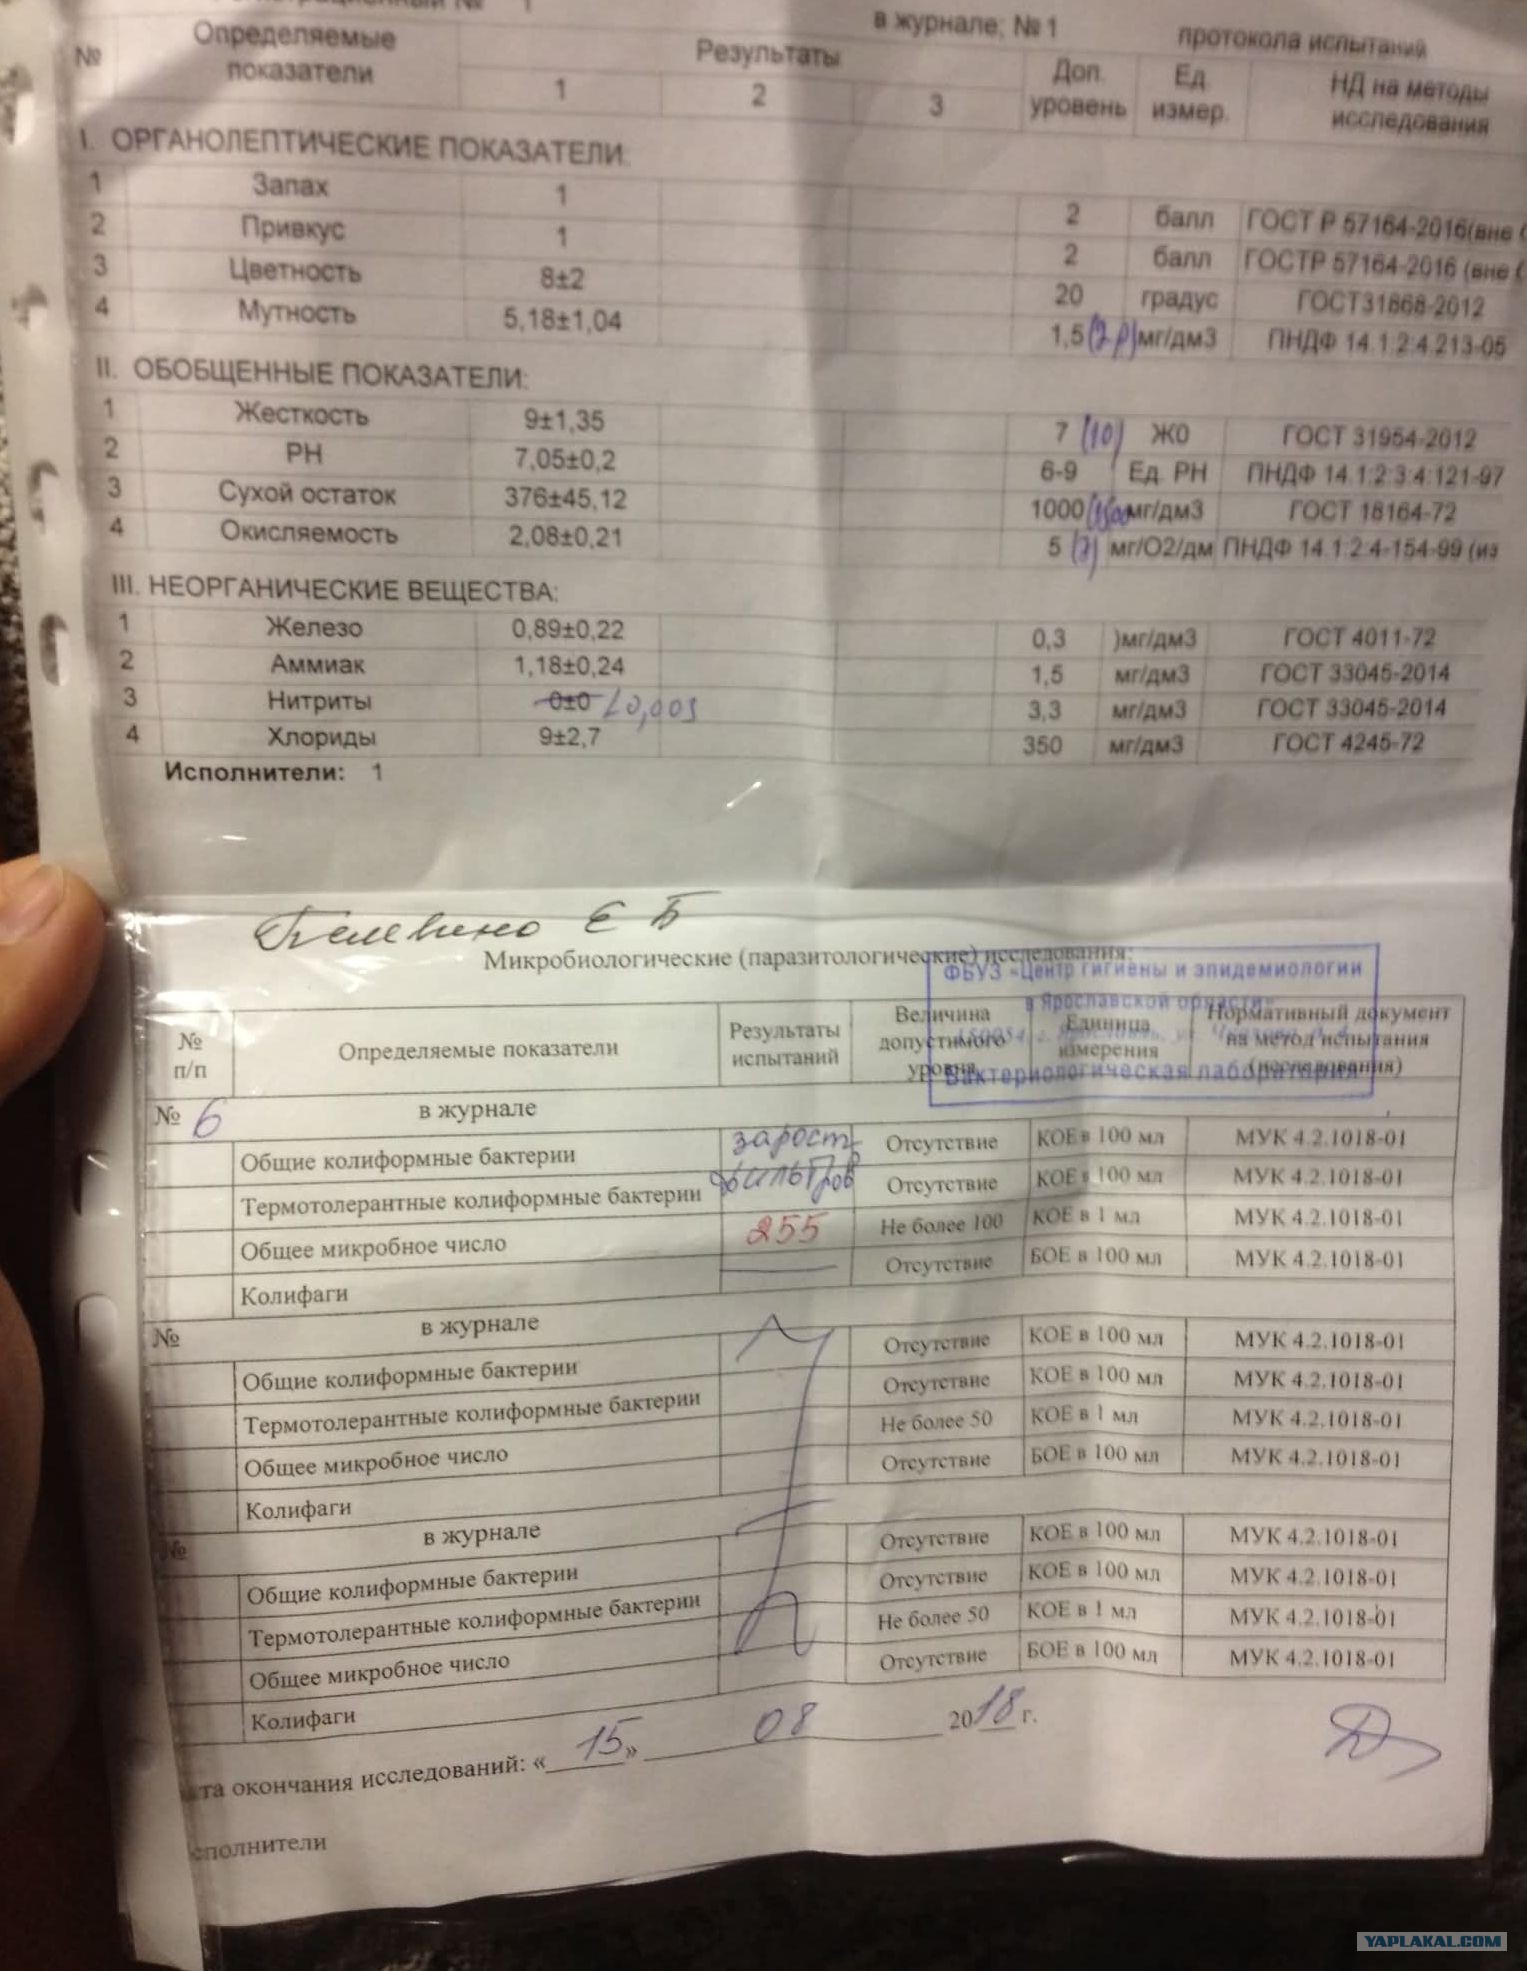 № 1
в журнале; № 1 протокола испытаний
№ Определяемые показатели Результаты Доп. уровень Ед. измер. НД на методы исследования
1 2 3
I. ОРГАНОЛЕПТИЧЕСКИЕ ПОКАЗАТЕЛИ:
1 Запах 1 2 балл ГОСТ Р 57164-2016(вне
2 Привкус 1 2 балл ГОСТР 57164-2016 (вне
3 Цветность 8±2 20 градус ГОСТ31868-2012
4 Мутность 5,18±1,04 1,5 мг/дм3 ПНДФ 14.1:2:4.213-05
II. ОБОБЩЕННЫЕ ПОКАЗАТЕЛИ:
1 Жесткость 9±1,35 7 (10) Ж0 ГОСТ 31954-2012
2 РН 7,05±0,2 6-9 Ед. РН ПНДФ 14.1:2:3:4:121-97
3 Сухой остаток 376±45,12 1000 (1500 мг/дм3 ГОСТ 18164-72
4 Окисляемость 2,08±0,21 5 (7) мг/О2/дм ПНДФ 14.1:2:4-154-99 (из
III. НЕОРГАНИЧЕСКИЕ ВЕЩЕСТВА:
1 Железо 0,89±0,22 0,3 )мг/дм3 ГОСТ 4011-72
2 Аммиак 1,18±0,24 1,5 мг/дм3 ГОСТ 33045-2014
3 Нитриты 0±0 <0,003 3,3 мг/дм3 ГОСТ 33045-2014
4 Хлориды 9±2,7 350 мг/дм3 ГОСТ 4245-72
Исполнители: 1
Е Б
Микробиологические (паразитологические) исследования:
ФБУЗ «Центр гигиены и эпидемиологии
в Ярославской области»
150054, г. Ярославль, ул.
Бактериологическая лаборатория
№ п/п Определяемые показатели Результаты испытаний Величина допустимого уровня Единица измерения Нормативный документ на метод испытания (исследования)
№ 6 в журнале
Общие колиформные бактерии зарост Отсутствие КОЕ в 100 мл МУК 4.2.1018-01
Термотолерантные колиформные бактерии фильтров Отсутствие КОЕ в 100 мл МУК 4.2.1018-01
Общее микробное число 255 Не более 100 КОЕ в 1 мл МУК 4.2.1018-01
Колифаги Отсутствие БОЕ в 100 мл МУК 4.2.1018-01
№ в журнале
Общие колиформные бактерии Отсутствие КОЕ в 100 мл МУК 4.2.1018-01
Термотолерантные колиформные бактерии Отсутствие КОЕ в 100 мл МУК 4.2.1018-01
Общее микробное число Не более 50 КОЕ в 1 мл МУК 4.2.1018-01
Колифаги Отсутствие БОЕ в 100 мл МУК 4.2.1018-01
№ в журнале
Общие колиформные бактерии Отсутствие КОЕ в 100 мл МУК 4.2.1018-01
Термотолерантные колиформные бактерии Отсутствие КОЕ в 100 мл МУК 4.2.1018-01
Общее микробное число Не более 50 КОЕ в 1 мл МУК 4.2.1018-01
Колифаги Отсутствие БОЕ в 100 мл МУК 4.2.1018-01
та окончания исследований: «15» 08 2018 г.
сполнители
YAPLAKAL.COM